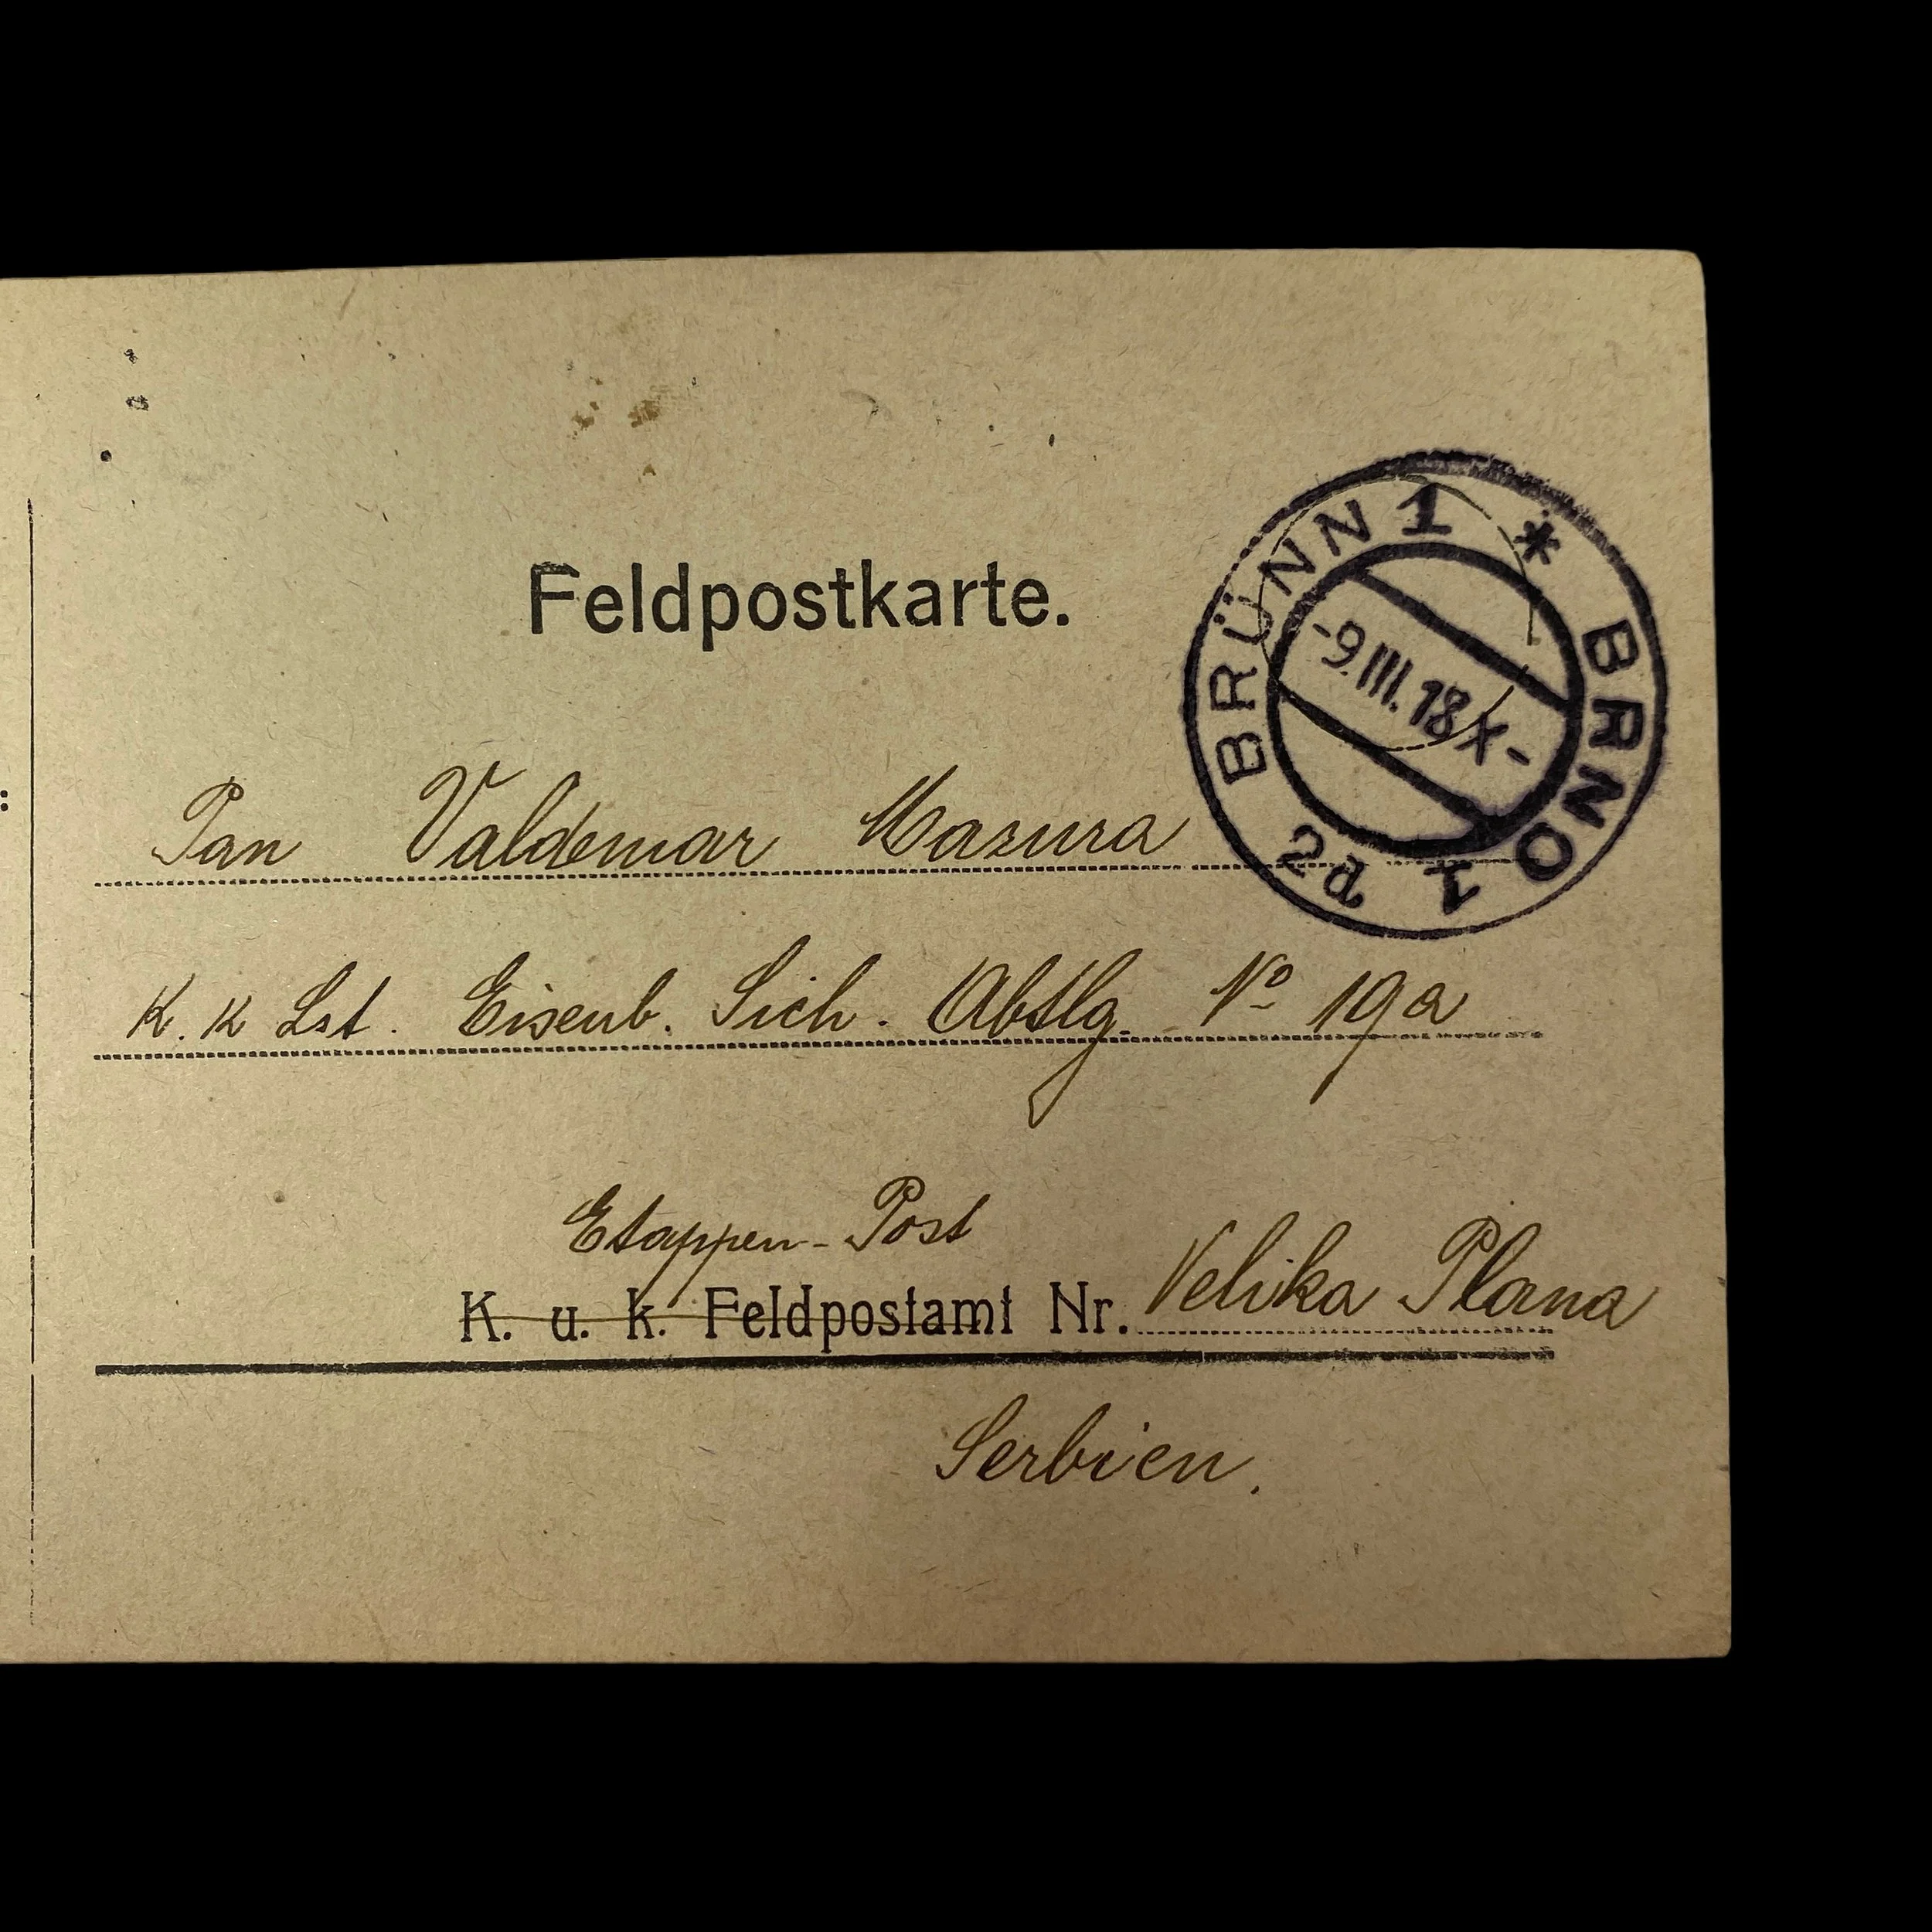 Feldpostkarte.
BRÜNN 1 * BRNO 1 2d
-9.III.18 X-
Pan Valdemar Mazura
K. K Lst. Eisenb. Sich. Abtlg. No 19a
Etappen-Post
K. u. k. Feldpostamt Nr. Velika Plana
Serbien.